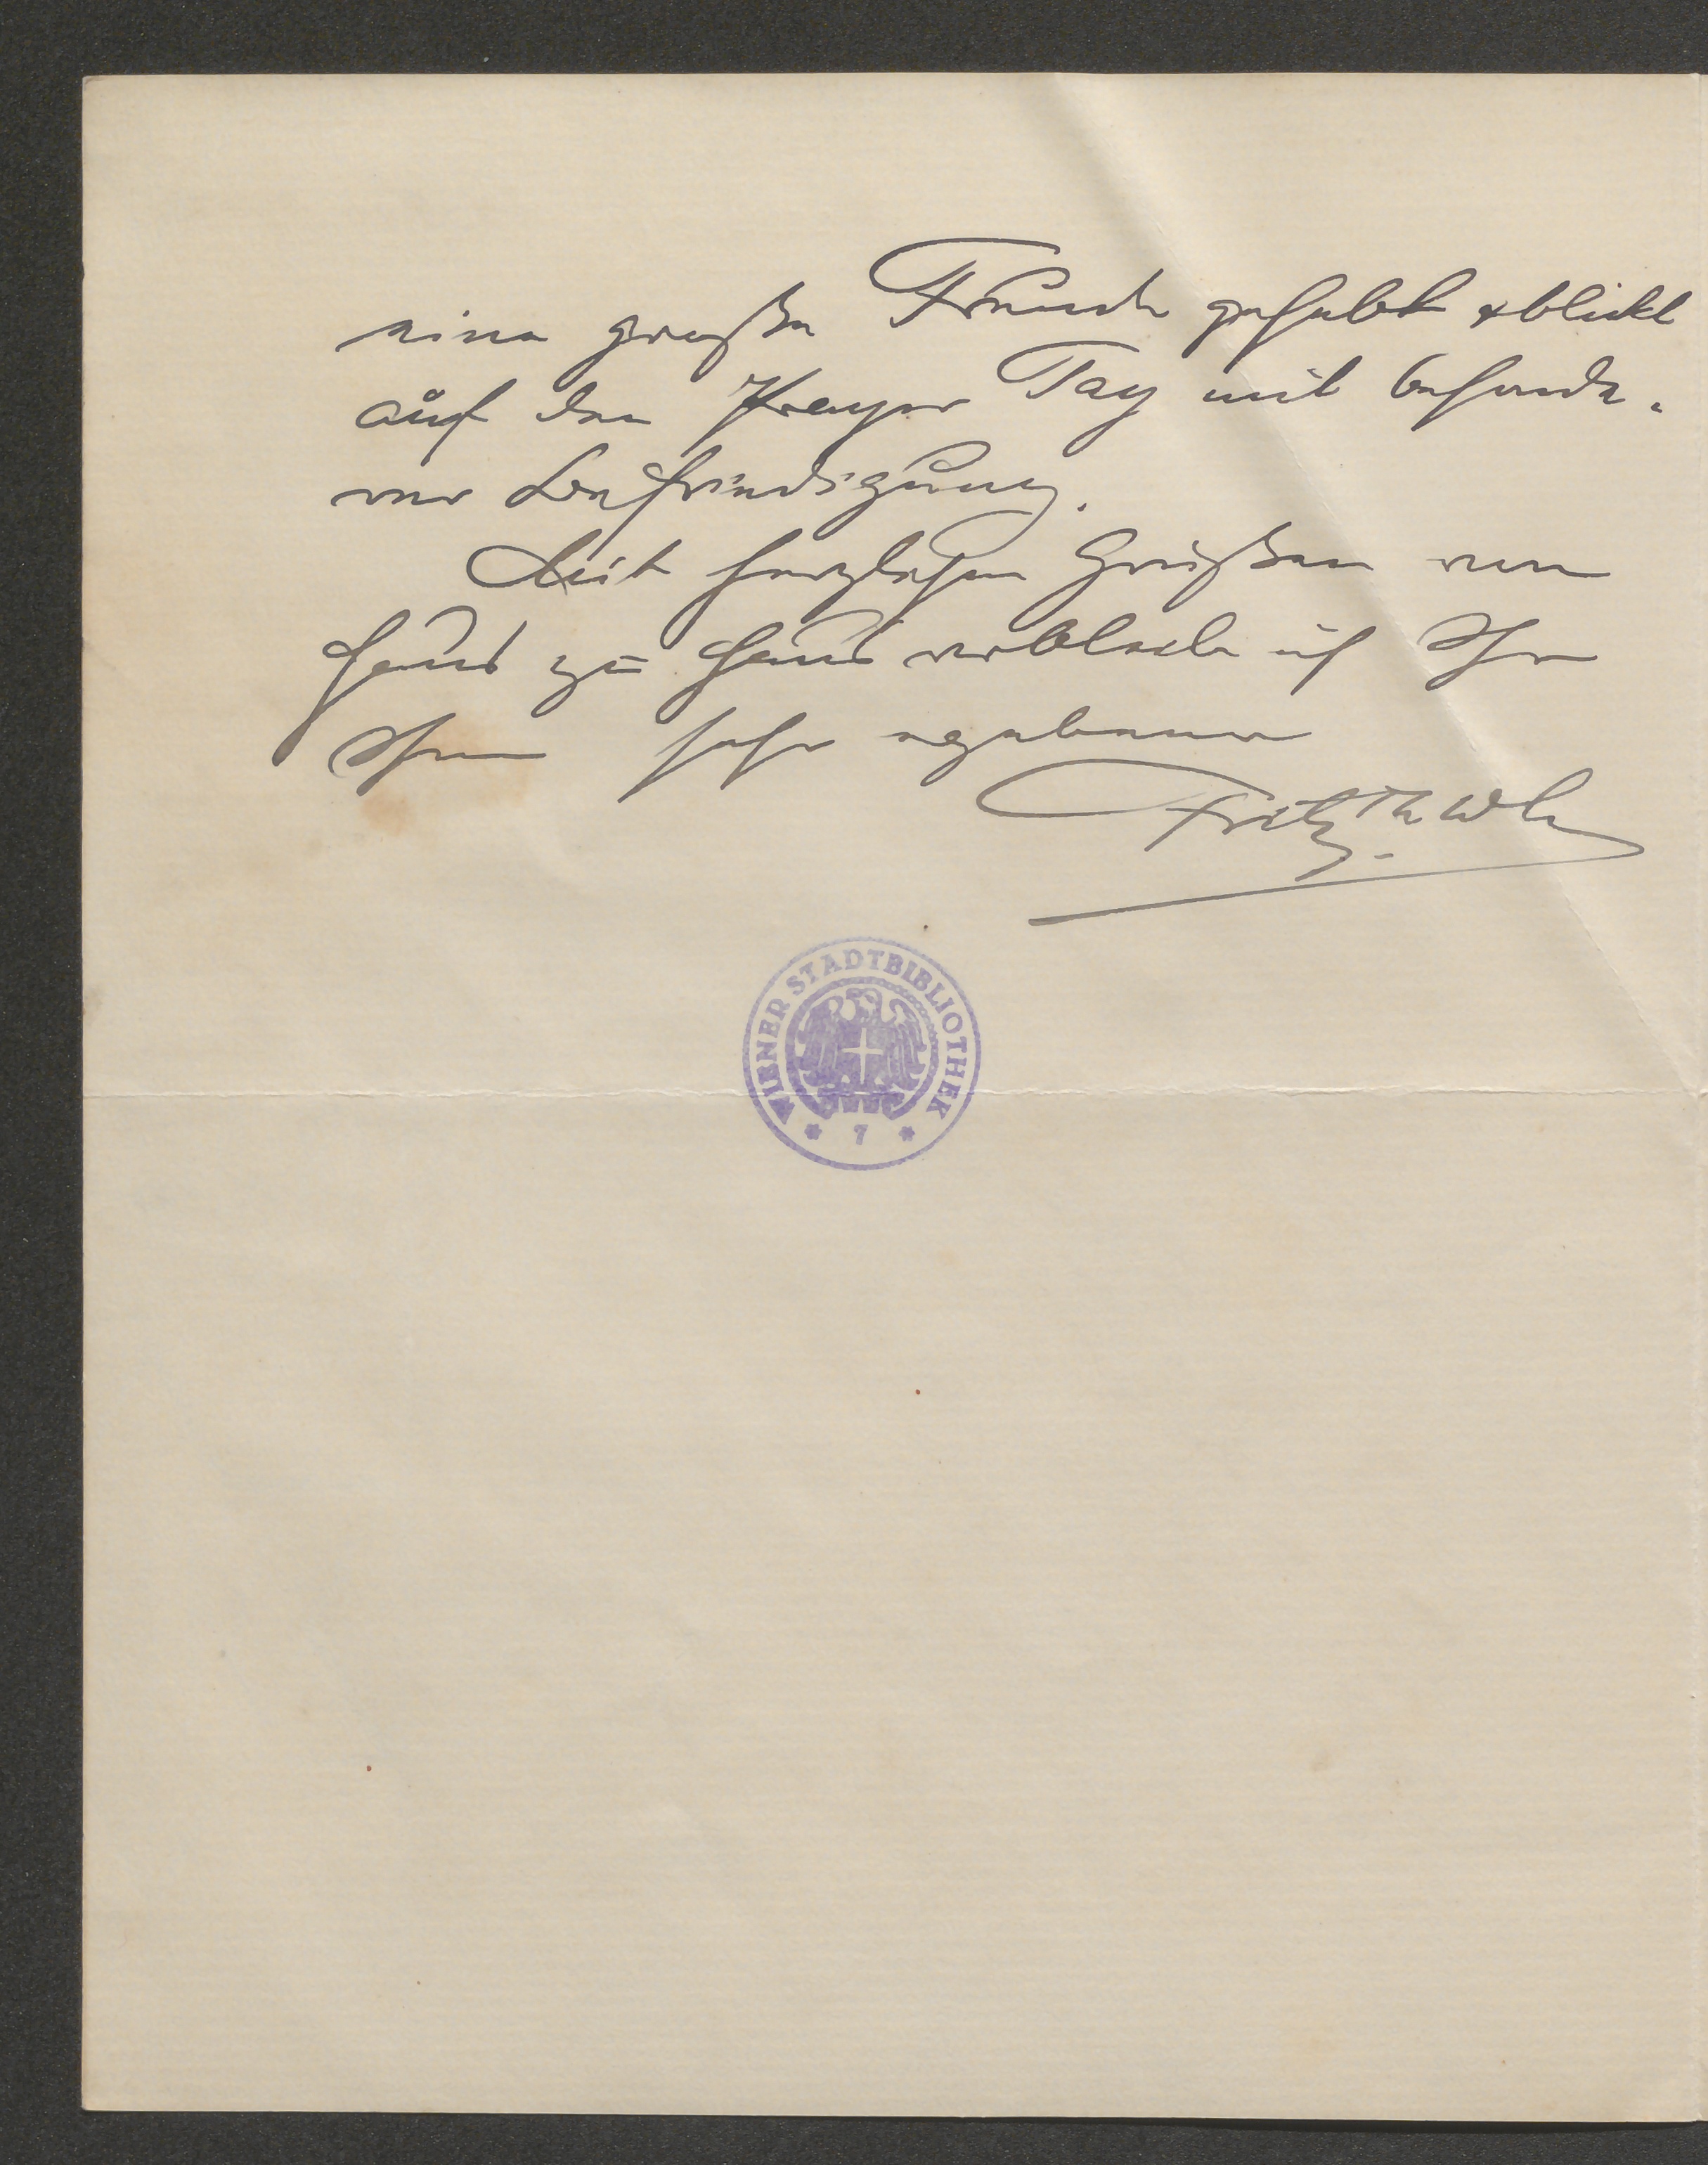 eine große Freude gehabt & blickt
auf den Prager Tag mit besonde-
rer Befriedigung.
Mit herzlichen Grüßen von
Haus zu Haus verbleibe ich Ihr
Ihnen sehr ergebener
Fritz
WIENER STADTBIBLIOTHEK
* 7 *